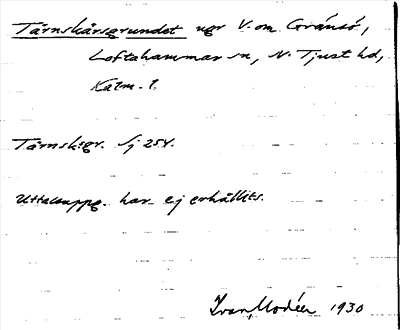 Tärnskärsgrundet ugr V. om Gränsö,
Loftahammar sn, N. Tjust hd,
Kalm. l.
Tärnsksgr. Sj 254.
Uttalsuppg. har ej erhållits.
Ivar Modéer 1930